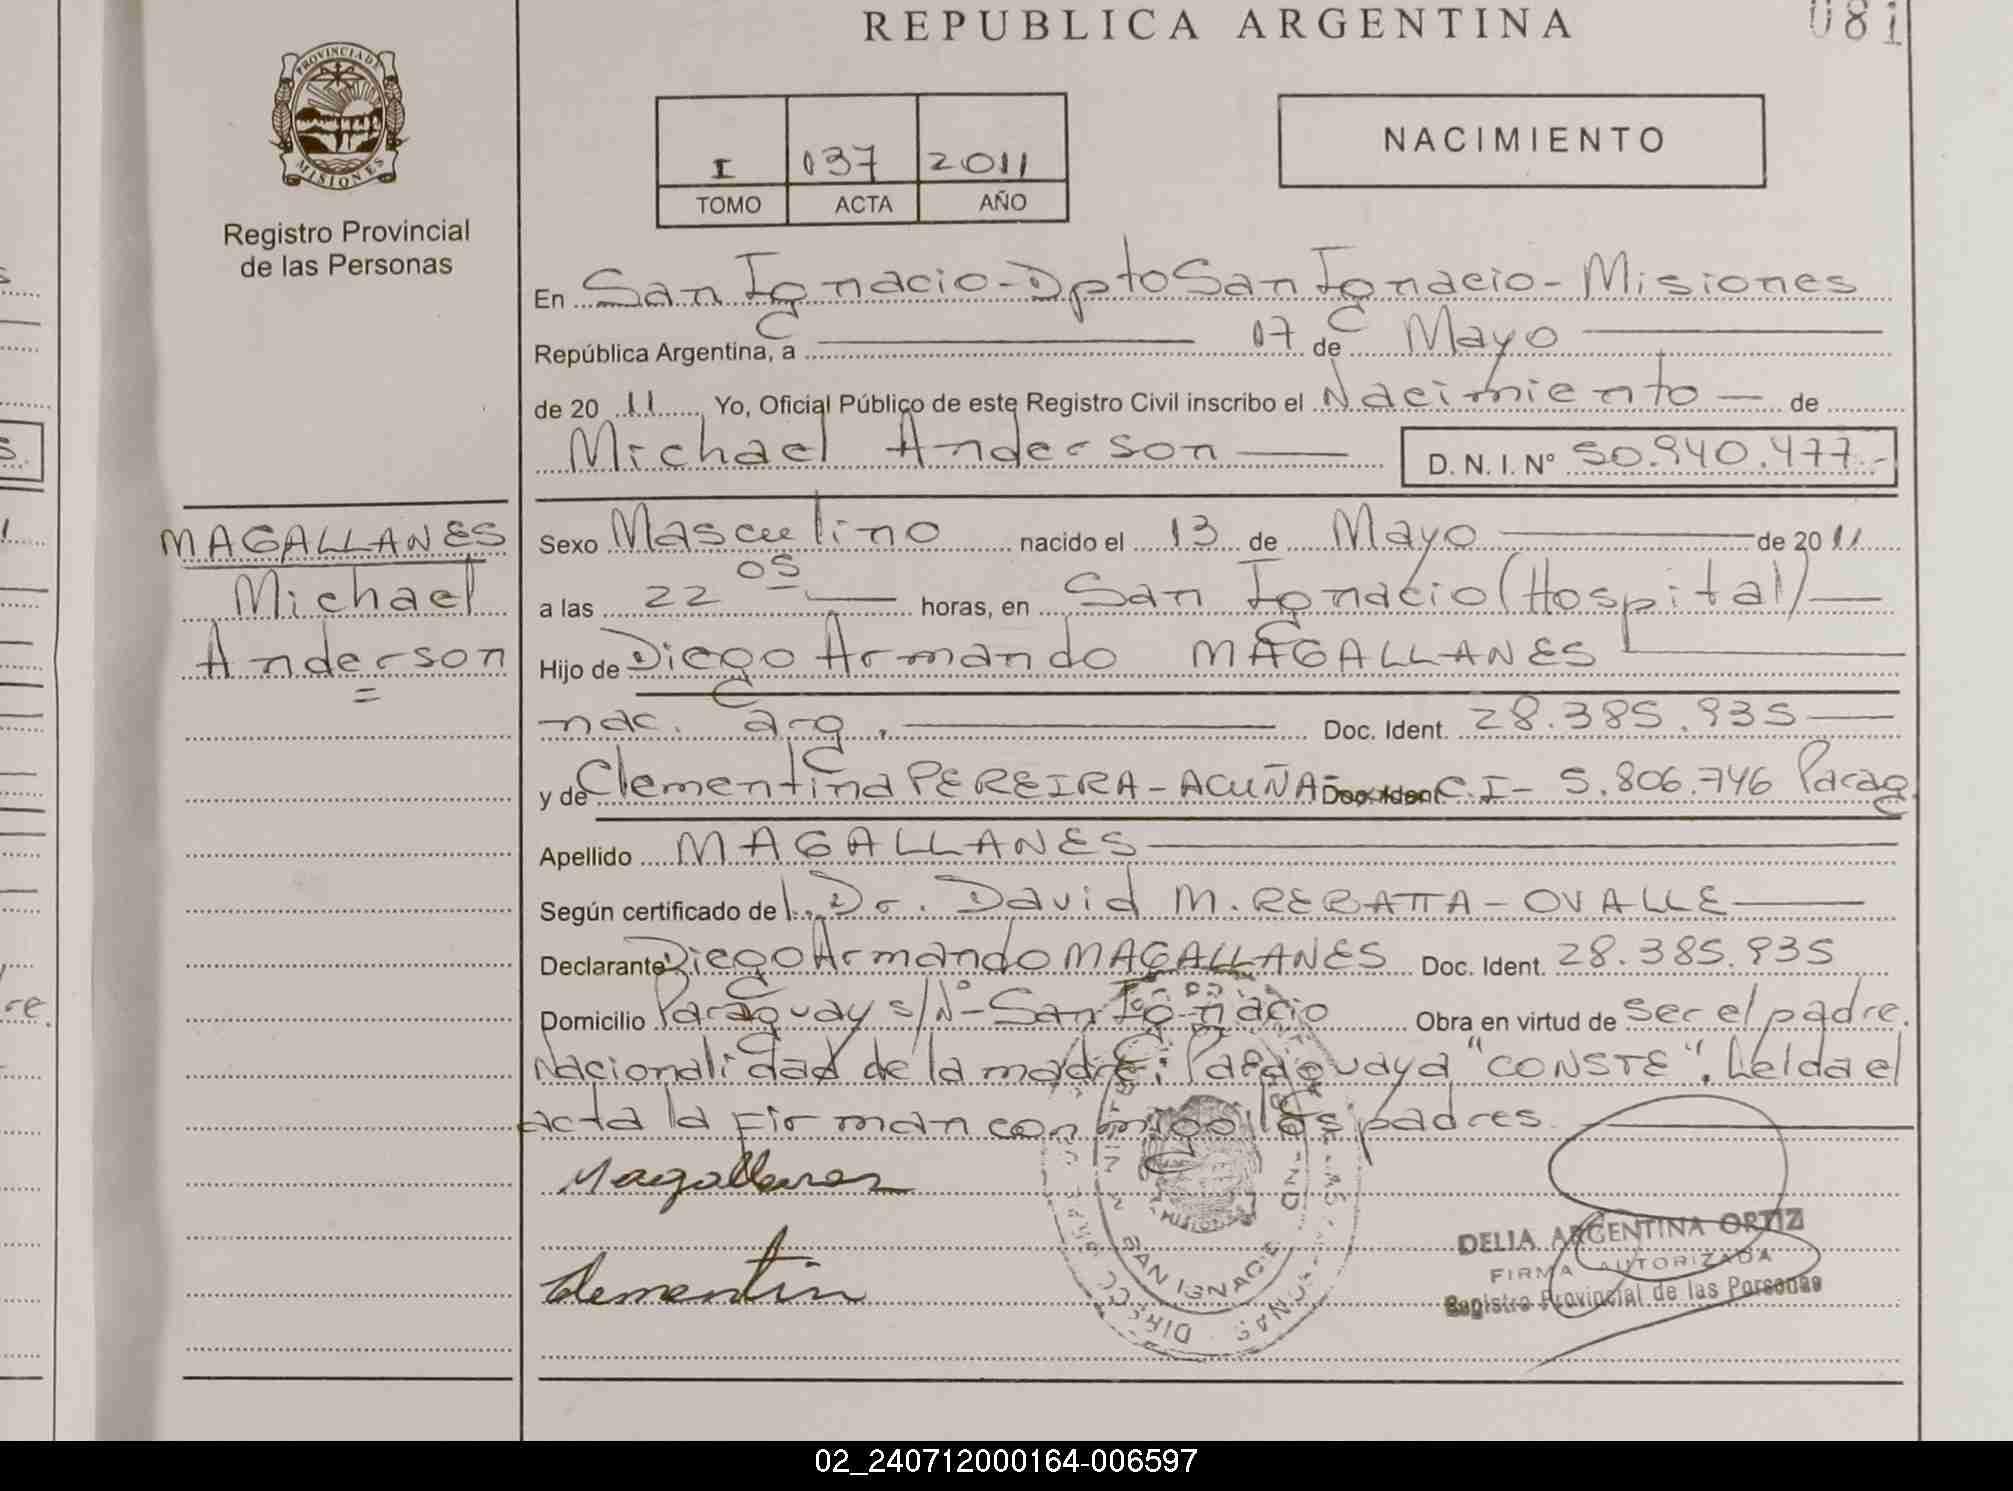 REPUBLICA ARGENTINA
081
PROVINCIA DE
MISIONES
Registro Provincial
de las Personas
I 037 2011
TOMO ACTA AÑO
NACIMIENTO
En San Ignacio - Dpto San Ignacio - Misiones
República Argentina, a 07 de Mayo
de 20 11 Yo, Oficial Público de este Registro Civil inscribo el Nacimiento de
Michael Anderson D. N. I. N° 50.940.477.-
MAGALLANES
Michael
Anderson
Sexo Masculino nacido el 13 de Mayo de 20 11
a las 22 05 horas, en San Ignacio (Hospital)
Hijo de Diego Armando MAGALLANES
nac. arg. Doc. Ident. 28.385.935
y de Clementina PEREIRA - ACUÑA Doc. Ident. C.I - 5.806.746 Parag
Apellido MAGALLANES
Según certificado de l Dr. David M. REBATTA - OVALLE
Declarante Diego Armando MAGALLANES Doc. Ident. 28.385.935
Domicilio Paraguay s/N° - San Ignacio Obra en virtud de ser el padre.
Nacionalidad de la madre: Paraguaya "CONSTE". Leida el
acta la firman conmigo los padres.
Magallanes
Clementin
SAN IGNACIO
DELIA ARGENTINA ORTIZ
FIRMA AUTORIZADA
Registro Provincial de las Personas
02_240712000164-006597